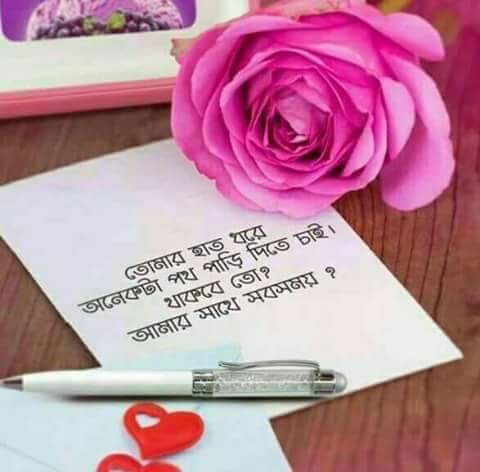 তোমার হাত ধরে
অনেকটা পথ পাড়ি দিতে চাই।
থাকবে তো?
আমার সাথে সবসময় ?